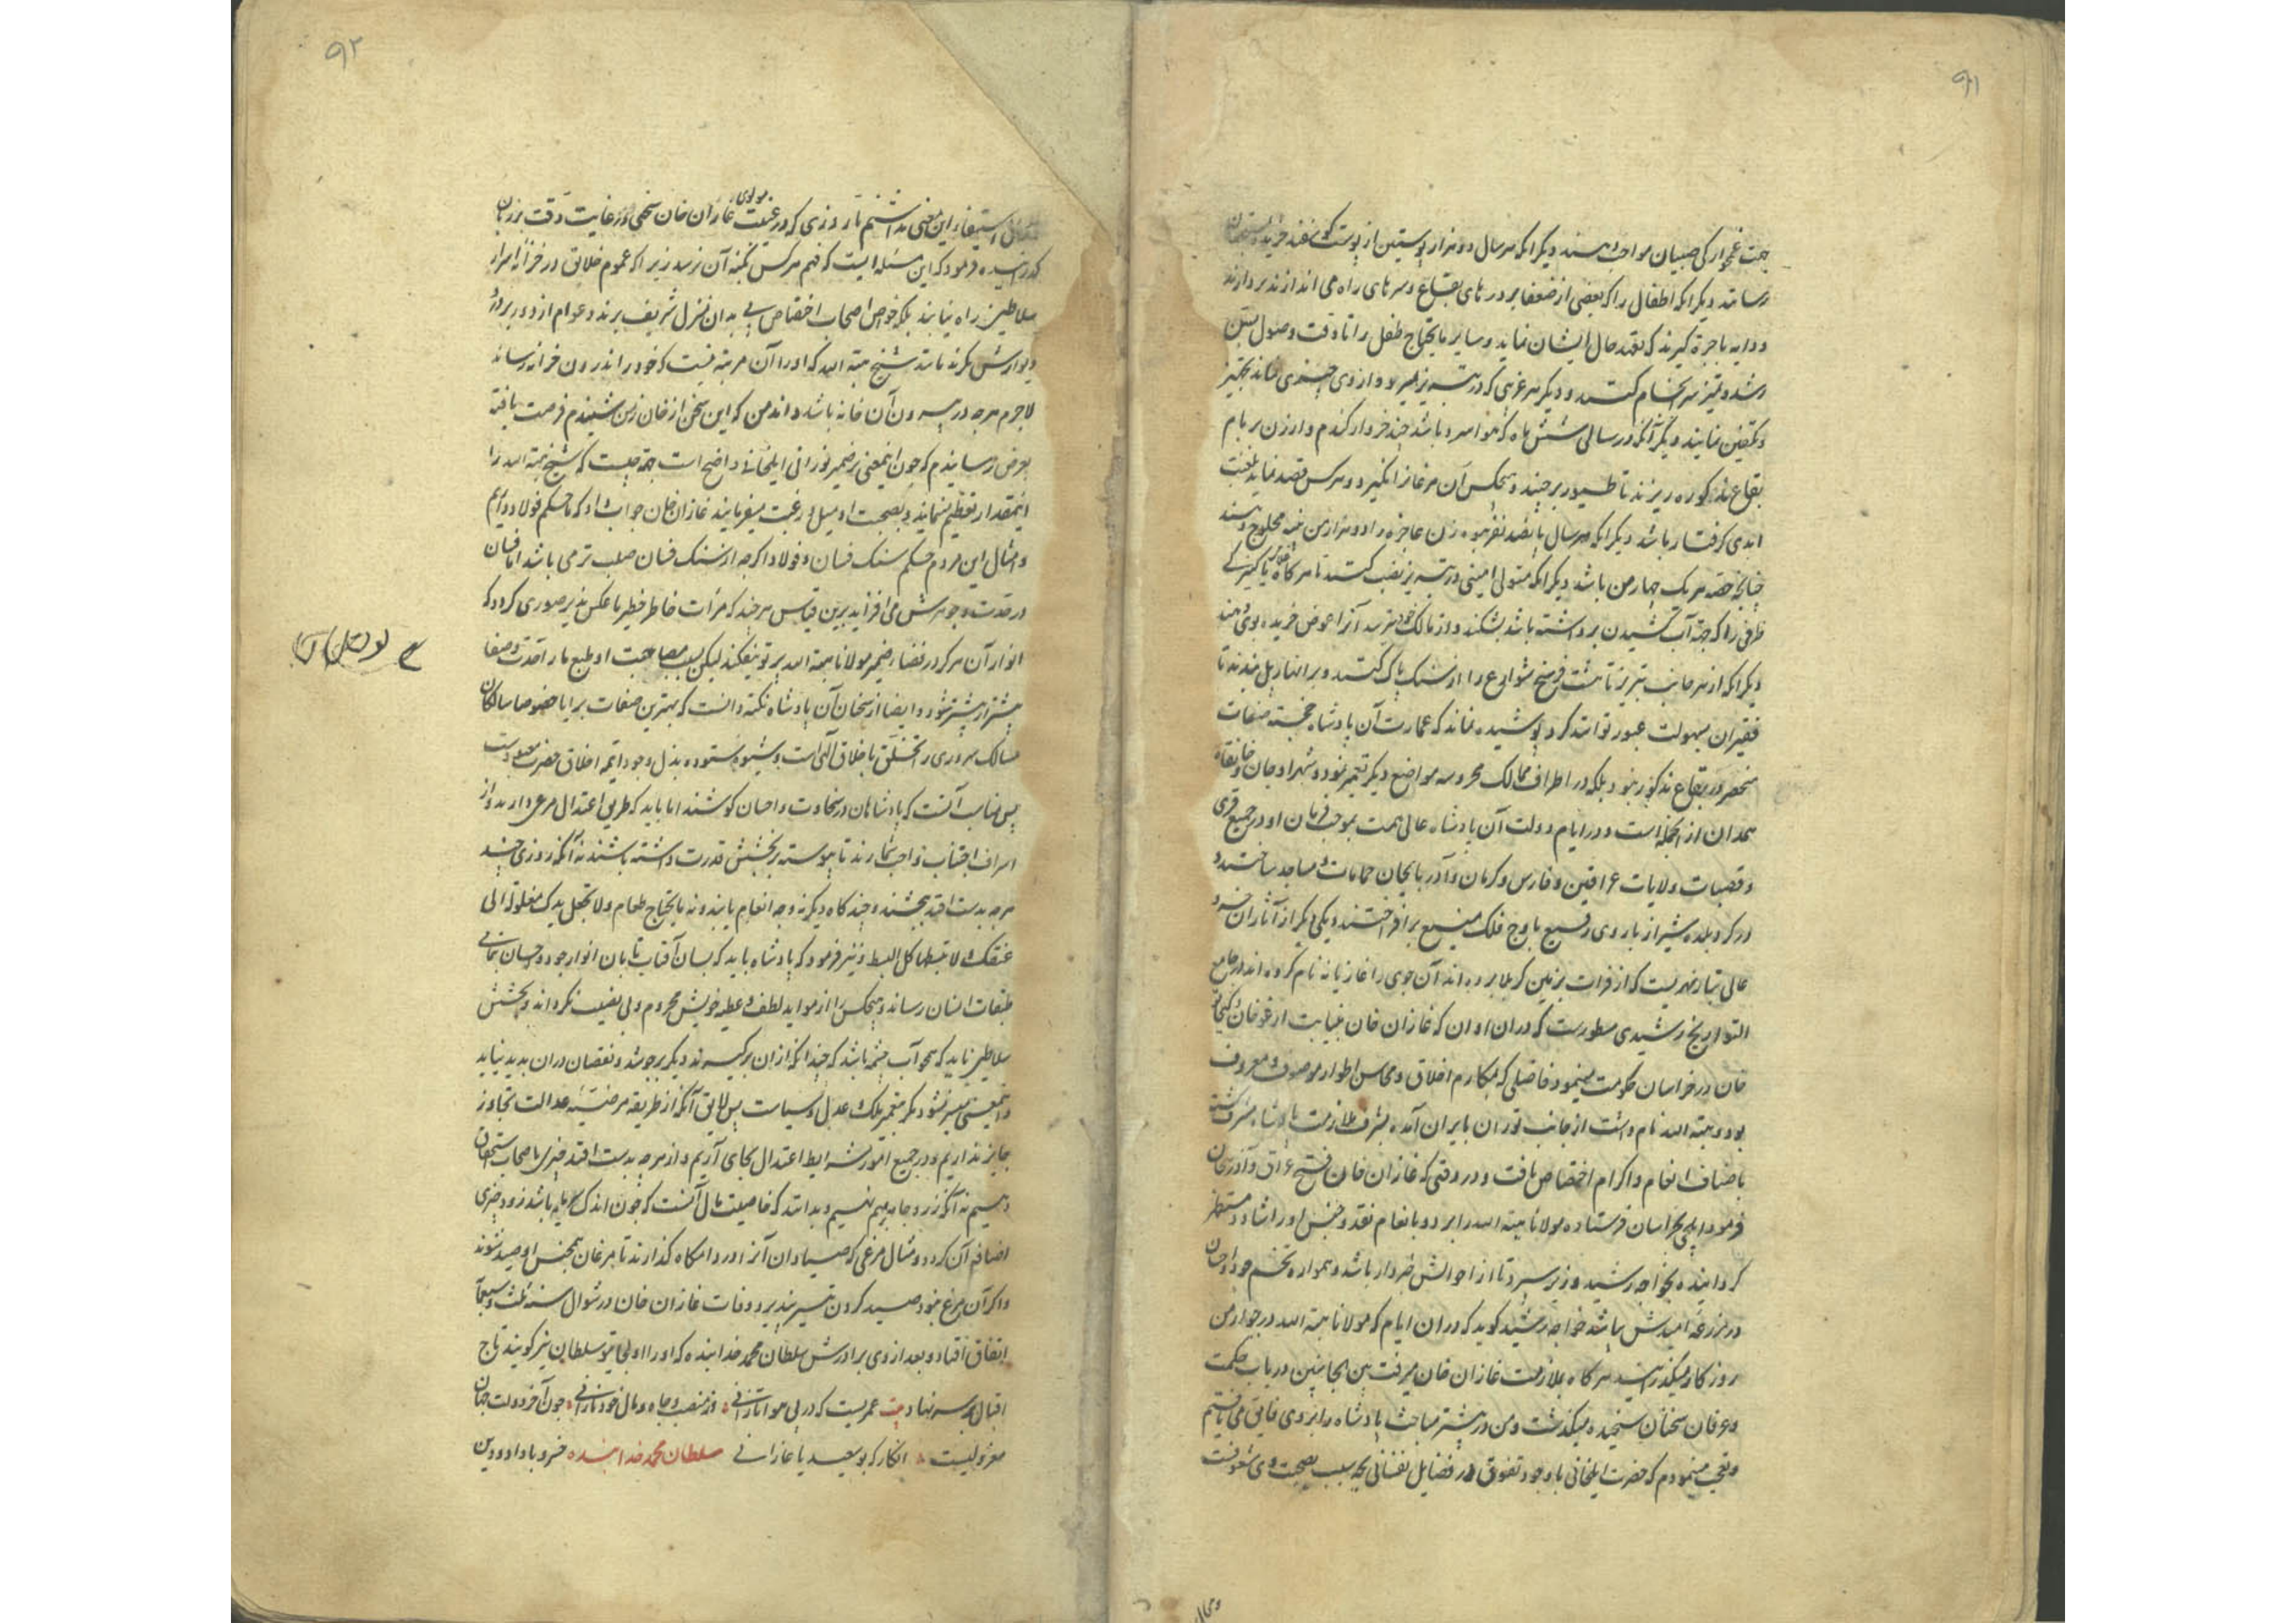 ۹۱
جهت غمخوارکی صبیان مواجب دهند دیکر انکه هر سال دو هزار پوستین از پوست کوسفند خریده بمستحقان
رسانند دیکر انکه اطفال را که بعضی از ضعفا بر درهای بقاع و سرهای راه می اندازند بردارند
و دایه باجرة کیرند که تعهد حال ایشان نماید و سایر مایحتاج طفل را تا وقت وصول بسن
رشد و تمیز سرانجام کنند و دیکر هر غریبی که در تبریز بمیرد و از وی چیزی نماند تجهیز
و تکفین نمایند دیکر آنکه در سالی شش ماه که هوا سرد باشد چند خروار کندم و ارزن بر بام
بقاع مذکوره ریزند تا طیور برچینند و هیچکس آن مرغان انگیرد و هرکس قصد نماید بلعنت
ابدی کرفتار باشد دیکر انکه هر سال پانصد نفر بیوه زن عاجزه را دو هزار من پنبه محلوج دهند
چنانچه حصه هر یک چهار من باشد دیکر انکه متولی امینی در تبریز نصب کنند تا هر کاه غلامی یا کنیزکی
ظرفی را که جهة آب کشیدن برداشته باشد بشکند و از مالک خود بترسد آنرا عوض خریده بوی دهند
دیکر انکه از هر جانب تبریز تا هشت فرسخ شوارع را از سنک پاک کنند و بر انهار پل بندند تا
فقیران بسهولت عبور توانند کرد و پوشیده نماند که عمارت آن پادشاه خجسته صفات
منحصر در بقاع مذکور نبود بلکه در اطراف ممالک محروسه مواضع دیکر تعمیر نمود و شهر اوجان و خانقاه
همدان از انجمله است و در ایام دولت آن پادشاه عالی همت بموجب فرمان او در جمیع قری
و قصبات ولایات عراقین و فارس و کرمان و آذربایجان حمامات و مساجد ساختند و
در کرد بلده شیراز باروی رفیع باوج فلک منیع برافراختند و یکی دیکر از آثار ان خسرو
عالی تبار نهریست که از فرات بزمین کربلا برده اند آن جوی را غازیانه نام کرده اند در جامع
التواریخ رشیدی مسطورست که در ان اوان که غازان خان بنیابت ارغون خان و کیخاتو
خان در خراسان حکومت مینمود فاضلی که بمکارم اخلاق و محاسن اطوار موصوف و معروف
بود و هبته الله نام داشت از جانب توران بایران آمده بشرف ملازمت پادشاه مشرف کشته
باصناف انعام و اکرام اختصاص یافت و در وقتی که غازان خان فتح عراق و آذربیجان
فرمود ایلچی بخراسان فرستاده مولانا هبته الله را برد و بانعام نقد و جنس او را شاد و مستظهر
کردانیده بخواجه رشید وزیر سپرد تا از احوالش خبردار باشد و همواره تخم جود و احسان
در مزرعه امیدش پاشد خواجه رشید کوید که در ان ایام که مولانا هبته الله در جوار من
روزکار میگذرانید هر کاه بملازمت غازان خان میرفت بین الجانبین در باب حکمت
و عرفان سخنان سنجیده میگذشت و من در بیشتر مباحث پادشاه را بر وی فایق می یافتم
و تعجب مینمودم که حضرت ایلخانی با وجود تفوق در فضایل نفسانی بچه سبب بصحبت وی مشعوفست
۹۲
استیفاء این معنی نداشتم تا روزی که در غیبت مولوی غازان خان سخنی در غایت دقت بر زبان
کذرانیده فرمود که این مسئله ایست که فهم هر کس بکنه آن نرسد زیرا که عموم خلایق در خزانه اسرار
سلاطین راه نیابند بلکه خواص اصحاب اختصاص پی بدان منزل شریف برند و عوام از دور بر در و
دیوارش نکرند مانند شیخ هبته الله که او را آن مرتبه نیست که خود را اندرون خزانه رساند
لاجرم هر چه در بیرون آن خانه باشد داند من که این سخن از خان زمن شنیدم فرصت یافته
بعرض رسانیدم که چون اینمعنی بر ضمیر نورانی ایلخانی واضح است جهة چیست که شیخ هبته الله را
اینمقدار تعظیم مینماید و بصحبت او میل و رغبت میفرمایند غازان خان جواب داد که ما حکم فولاد داریم
و امثال این مردم حکم سنک فسان و فولاد اکرچه از سنک فسان صلب تر می باشد اما فسان
در حدت و جوهرش می افزاید برین قیاس هر چند که مرآت خاطر خطیر ما عکس پذیر صوری کردد که
انوار آن هرکز در فضاء ضمیر مولانا هبته الله پرتو نیفکند لیکن بسبب مصاحبت او طبع ما را حدت و صفا
بیشتر از پیشتر شود و ایضا از سخنان آن پادشاه نکته دانست که بهترین صفات برایا خصوصا سالکان
مسالک سروری را تخلق باخلاق الهی است و شیوه ستوده بذل و جود اتم اخلاق حضرت معبودست
پس مناسب آنست که پادشاهان در سخاوت و احسان کوشند اما باید که طریق اعتدال مرعی دارند و از
اسراف اجتناب واجب شمارند تا پیوسته بر بخشش قدرت داشته باشند نه آنکه روزی چند
هرچه بدست افتد ببخشند و چند کاه دیکر نه وجه انعام یابند و نه مایحتاج طعام ولا تجعل یدک مغلولة الی
عنقک و لا تبسطها کل البسط و نیز فرمود که پادشاه باید که بسان آفتاب تابان انوار جود و احسان بتمامی
طبقات انسان رساند و هیچکس را از مواید لطف و عطیه خویش محروم و بی نصیب نکرداند و بخشش
سلاطین باید که همچو آب چشمه باشد که چندانکه از ان برکیرند دیکر برجوشد و نقصان دران پدید نیاید
و اینمعنی میسر نشود مکر بتعمیر ملک و عدل و سیاست پس لایق آنکه از طریقه مرضیه عدالت تجاوز
جایز نداریم و در جمیع امور شرایط اعتدال بجای آریم و از هرچه بدست افتد چیزی باصحاب استحقاق
دهیم نه آنکه زر و جامه برهم نهیم و بدانند که خاصیت مال آنست که چون اندک مایه باشد زود چیزی
اضافه آن کردد و مثال مرغی که صیادان آنرا در دامکاه کذارند تا مرغان همجنس او صید شوند
و اکر آن مرغ نبود صید کردن تیسیر نپذیرد و وفات غازان خان در شوال سنه ثلث و سبعمآئه
اتفاق افتاد و بعد از وی برادرش سلطان محمد خدابنده که او را اولجایتو سلطان نیز کویند تاج
اقبال بر سر نهاد بیت عمریست که در پی هوا تازانی وز منصب و جاه و مال خود نازانی چون آخر دولت جهان
معزولیست انکار که بوسعید یا غازانی سلطان محمد خدابنده خسرو با داد و دین